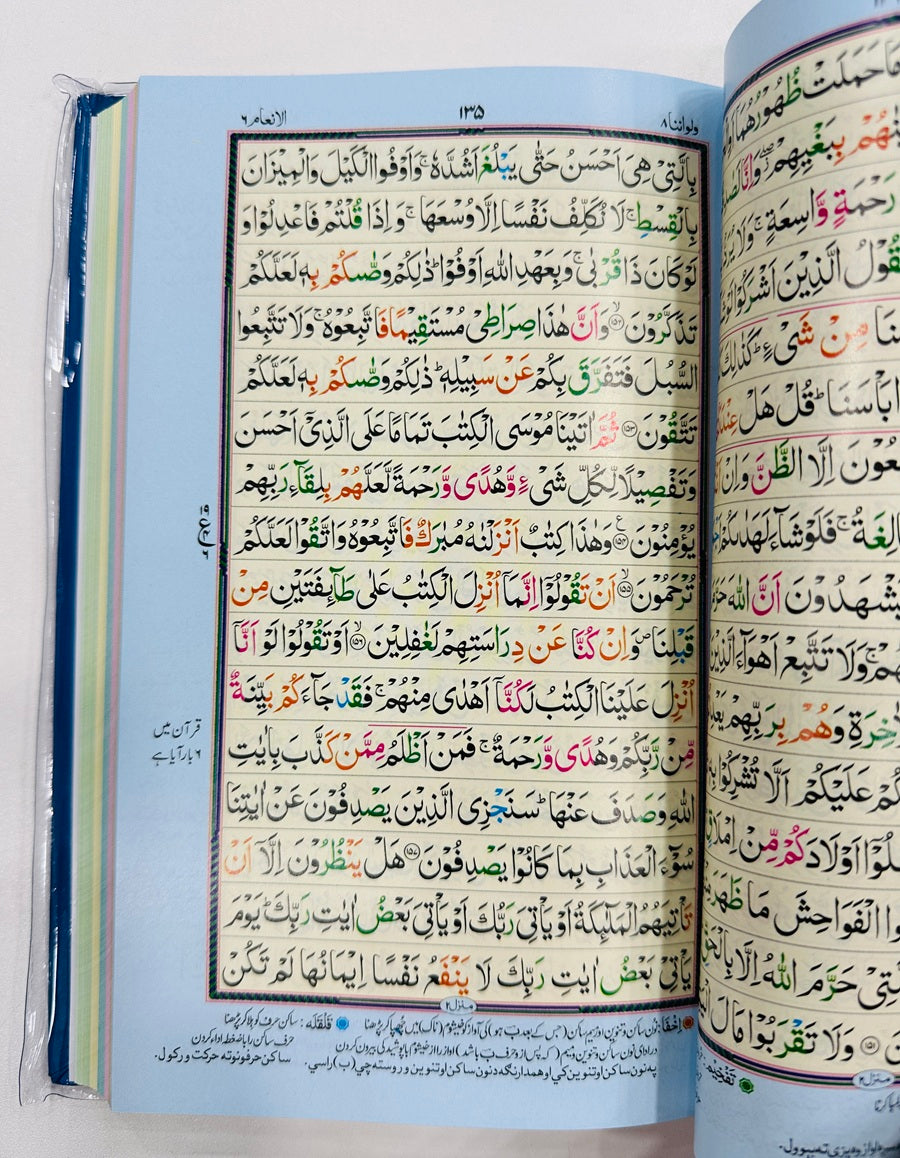 ولواننا ٨
١٣٥
الانعام ٦
بِالَّتِىْ هِىَ اَحْسَنُ حَتّٰى يَبْلُغَ اَشُدَّهٗ ۚ وَاَوْفُوا الْكَيْلَ وَالْمِيْزَانَ
بِالْقِسْطِ ۚ لَا نُكَلِّفُ نَفْسًا اِلَّا وُسْعَهَا ۚ وَاِذَا قُلْتُمْ فَاعْدِلُوْا وَ
لَوْ كَانَ ذَا قُرْبٰى ۚ وَبِعَهْدِ اللّٰهِ اَوْفُوْا ؕ ذٰلِكُمْ وَصّٰىكُمْ بِهٖ لَعَلَّكُمْ
تَذَكَّرُوْنَ ۙ‏﴿۱۵۲﴾ وَاَنَّ هٰذَا صِرَاطِىْ مُسْتَقِيْمًا فَاتَّبِعُوْهُ ۚ وَلَا تَتَّبِعُوا
السُّبُلَ فَتَفَرَّقَ بِكُمْ عَنْ سَبِيْلِهٖ ؕ ذٰلِكُمْ وَصّٰىكُمْ بِهٖ لَعَلَّكُمْ
تَتَّقُوْنَ ﴿۱۵۳﴾ ثُمَّ اٰتَيْنَا مُوْسَى الْكِتٰبَ تَمَامًا عَلَى الَّذِىْۤ اَحْسَنَ
وَتَفْصِيْلًا لِّكُلِّ شَىْءٍ وَّهُدًى وَّرَحْمَةً لَّعَلَّهُمْ بِلِقَآءِ رَبِّهِمْ
يُؤْمِنُوْنَ ﴿۱۵۴﴾ وَهٰذَا كِتٰبٌ اَنْزَلْنٰهُ مُبٰرَكٌ فَاتَّبِعُوْهُ وَاتَّقُوْا لَعَلَّكُمْ
تُرْحَمُوْنَ ۙ﴿۱۵۵﴾ اَنْ تَقُوْلُوْۤا اِنَّمَاۤ اُنْزِلَ الْكِتٰبُ عَلٰى طَآئِفَتَيْنِ مِنْ
قَبْلِنَا ۪ وَاِنْ كُنَّا عَنْ دِرَاسَتِهِمْ لَغٰفِلِيْنَ ۙ﴿۱۵۶﴾ اَوْ تَقُوْلُوْا لَوْ اَنَّاۤ
اُنْزِلَ عَلَيْنَا الْكِتٰبُ لَكُنَّاۤ اَهْدٰى مِنْهُمْ ۚ فَقَدْ جَآءَكُمْ بَيِّنَةٌ
مِّنْ رَّبِّكُمْ وَهُدًى وَّرَحْمَةٌ ۚ فَمَنْ اَظْلَمُ مِمَّنْ كَذَّبَ بِاٰيٰتِ
اللّٰهِ وَصَدَفَ عَنْهَا ؕ سَنَجْزِى الَّذِيْنَ يَصْدِفُوْنَ عَنْ اٰيٰتِنَا
سُوْٓءَ الْعَذَابِ بِمَا كَانُوْا يَصْدِفُوْنَ ﴿۱۵۷﴾ هَلْ يَنْظُرُوْنَ اِلَّاۤ اَنْ
تَاْتِيَهُمُ الْمَلٰٓئِكَةُ اَوْ يَاْتِىَ رَبُّكَ اَوْ يَاْتِىَ بَعْضُ اٰيٰتِ رَبِّكَ ؕ يَوْمَ
يَاْتِىْ بَعْضُ اٰيٰتِ رَبِّكَ لَا يَنْفَعُ نَفْسًا اِيْمَانُهَا لَمْ تَكُنْ
قرآن میں
٦ بار آیا ہے
منزل ٢
اخفا: نون ساکن و تنوین اور میم ساکن (جس کے بعد ب ہو) کی آواز کو خیشوم (ناک) میں چھپا کر پڑھنا
قلقلہ: ساکن حرف کو ہلا کر پڑھنا
حرف ساکن را با ضغطه ادا کردن
ساکن حرفونو ته حرکت ورکول.
مَا حَمَلَتْ ظُهُوْرُهُمَاۤ
بِبَغْيِهِمْ ۖ وَاِنَّا
رَحْمَةٍ وَّاسِعَةٍ ۚ وَلَا
الَّذِيْنَ اَشْرَكُوْا
مِنْ شَىْءٍ ؕ كَذٰلِكَ
بَاْسَنَا ؕ قُلْ هَلْ
اِلَّا الظَّنَّ وَاِنْ
فَلَوْ شَآءَ لَهَدٰىكُمْ
يَشْهَدُوْنَ اَنَّ اللّٰهَ
وَلَا تَتَّبِعْ اَهْوَآءَ
وَهُمْ بِرَبِّهِمْ
عَلَيْكُمْ اَلَّا تُشْرِكُوْا
اَوْلَادَكُمْ مِّنْ
الْفَوَاحِشَ مَا ظَهَرَ
حَرَّمَ اللّٰهُ اِلَّا
﴿۱۵۱﴾ وَلَا تَقْرَبُوْا مَالَ
منزل ٢
تفخیم